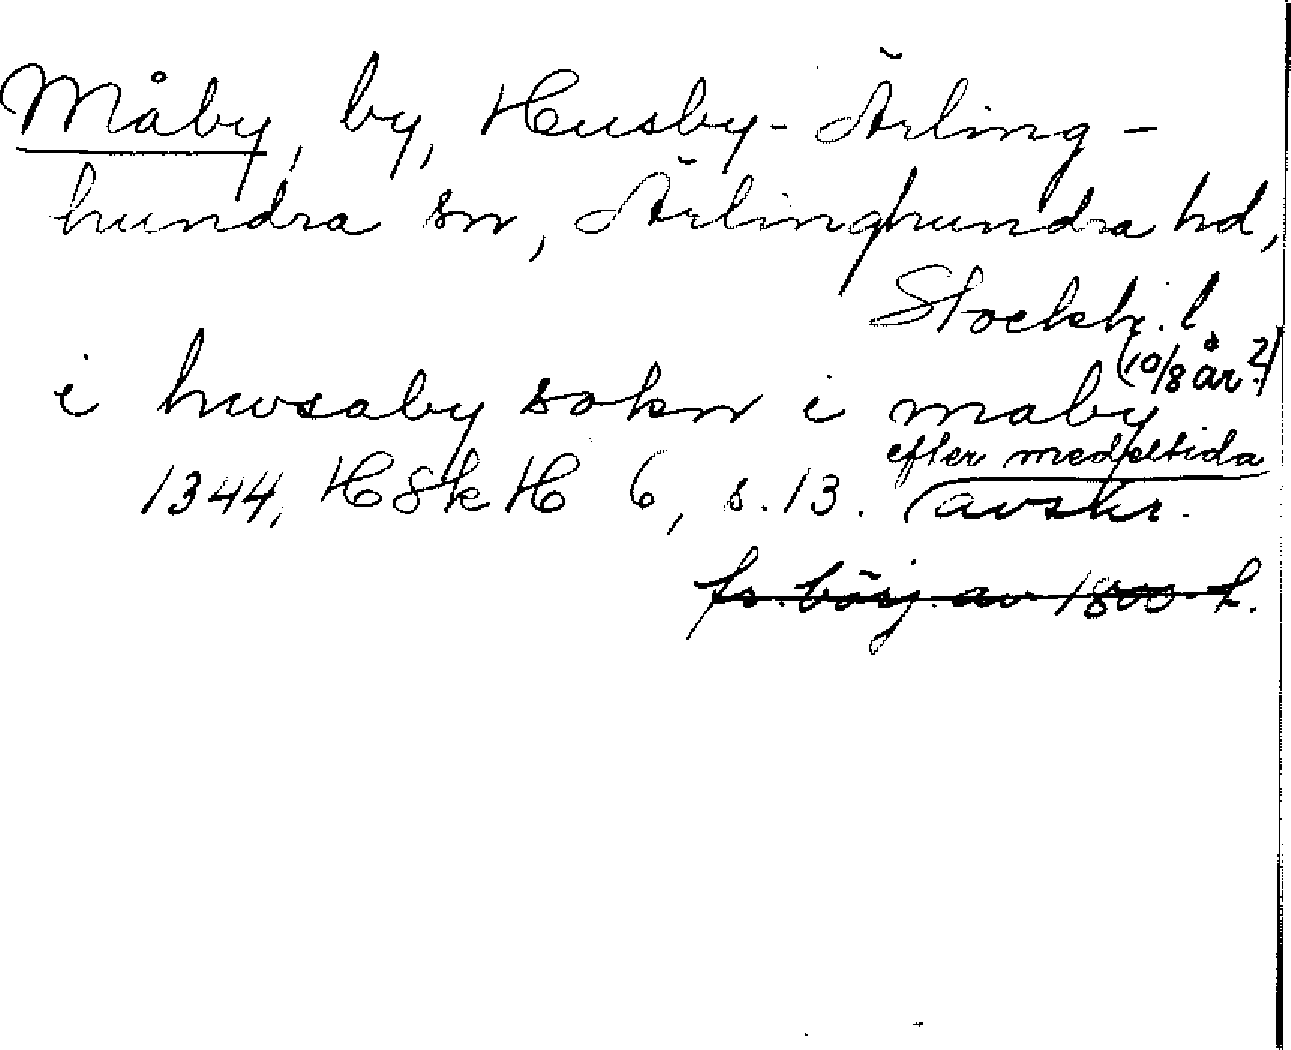 Måby, by, Husby-Ärling-
hundra sn, Ärlinghundra hd,
Stockh. l.
(10/8 år?)
i hwsaby sokn i maby
1344, HSkH 6, s. 13.
efter medeltida
avskr.
fr. börj. av 1800-t.